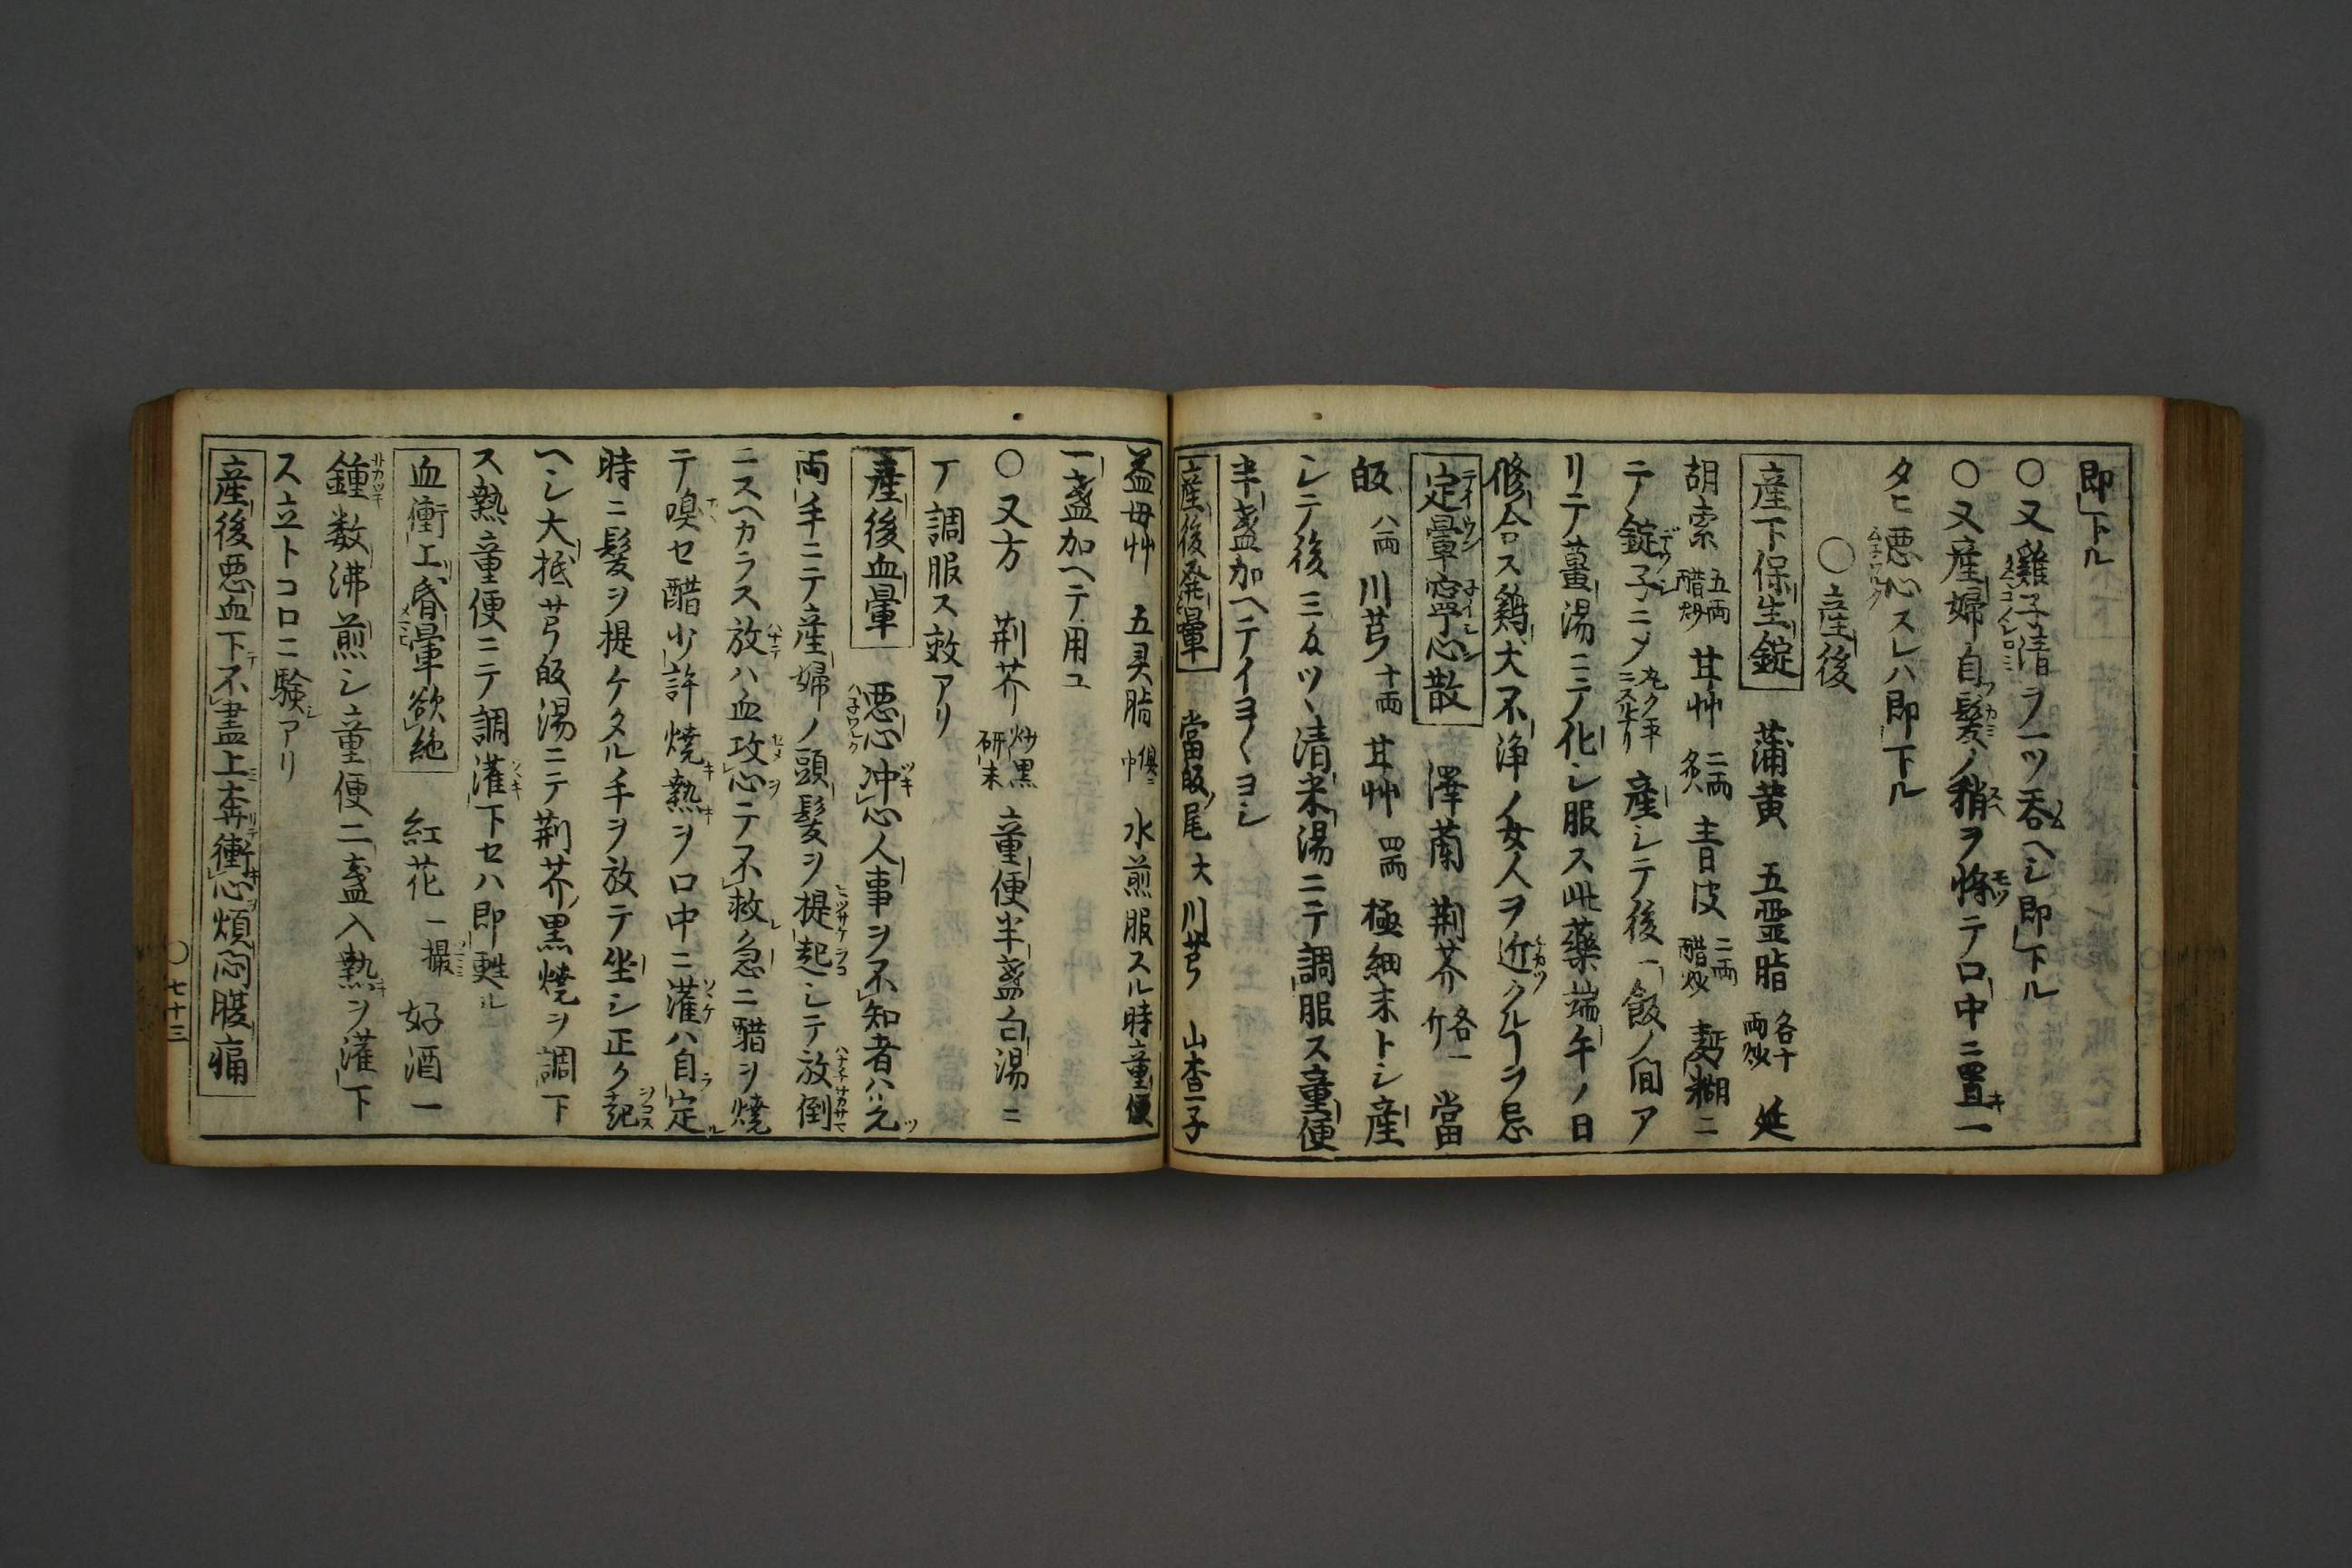 即下ル
〇又雞子清ヲ一ツ呑ヘシ即下ル
〇又産婦自髪ノ稍ヲ絛テ口中ニ置一
タヒ悪心スレハ即下ル
〇産後
産下保生錠 蒲黄 五霊脂 各十両炒 延
胡索 五両醋炒 甘艸 二両炙 青皮 二両醋炒 麪糊ニ
テ錠子ニメ 丸ク平ニスルナリ 産シテ後一飯ノ間ア
リテ薑湯ニテ化シ服ス此藥端午ノ日
修合ス鷄犬不浄ノ女人ヲ近クルヿヲ忌
定暈寧心散 澤蘭 荆芥 各一斤 當
皈 八両 川芎 十両 甘艸 四両 極細末トシ産
シテ後三匁ツヽ清米湯ニテ調服ス童便
半盞加ヘテイヨ〱ヨシ
産後發暈 當皈尾 大川芎 山査子
益母艸 五灵脂 水煎服スル時童便
一盞加ヘテ用ユ
〇又方 荆芥 炒黒研末 童便半盞白湯ニ
テ調服ス效アリ
産後血暈 悪心冲心人事ヲ不知者ハ先
両手ニテ産婦ノ頭髪ヲ提起シテ放倒
ニスヘカラス放ハ血攻心テ不救急ニ醋ヲ燒
テ嗅セ醋少許燒熱ヲ口中ニ灌ハ自定
時ニ髪ヲ提ケタル手ヲ放テ坐シ正ク起
ヘシ大抵芎皈湯ニテ荆芥黒燒ヲ調下
ス熱童便ニテ調灌下セハ即甦ル
血衝上昏暈欲絶 紅花一撮 好酒一
鍾数沸煎シ童便二盞入熱ヲ灌下
ス立トコロニ驗アリ
産後悪血下不盡上奔衝心煩悶腹痛
〇七十三